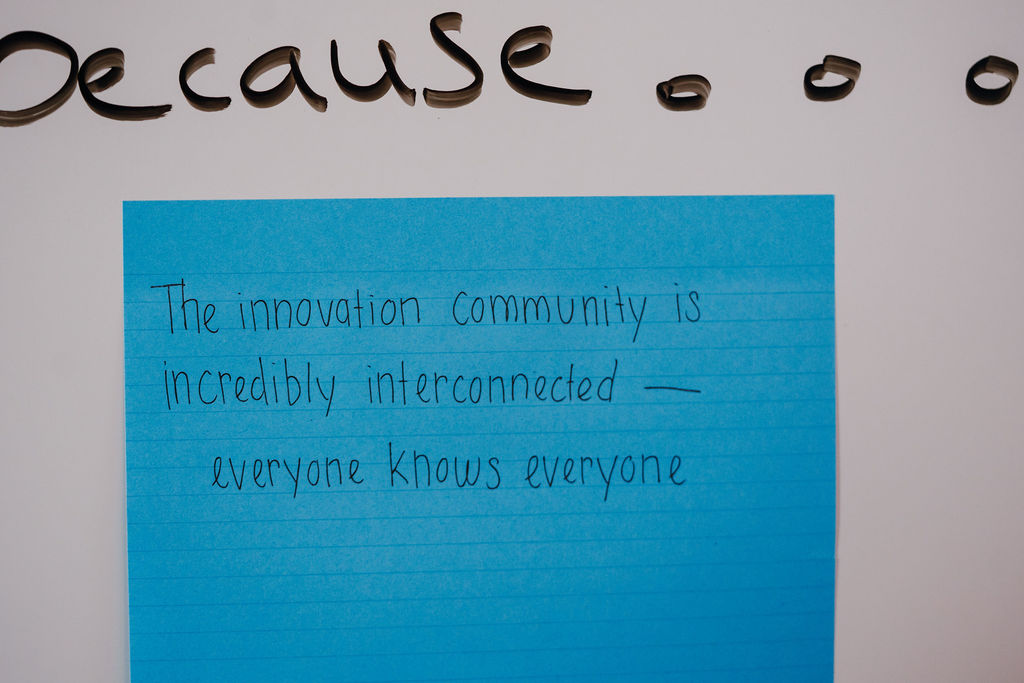 because...
The innovation community is
incredibly interconnected —
everyone knows everyone